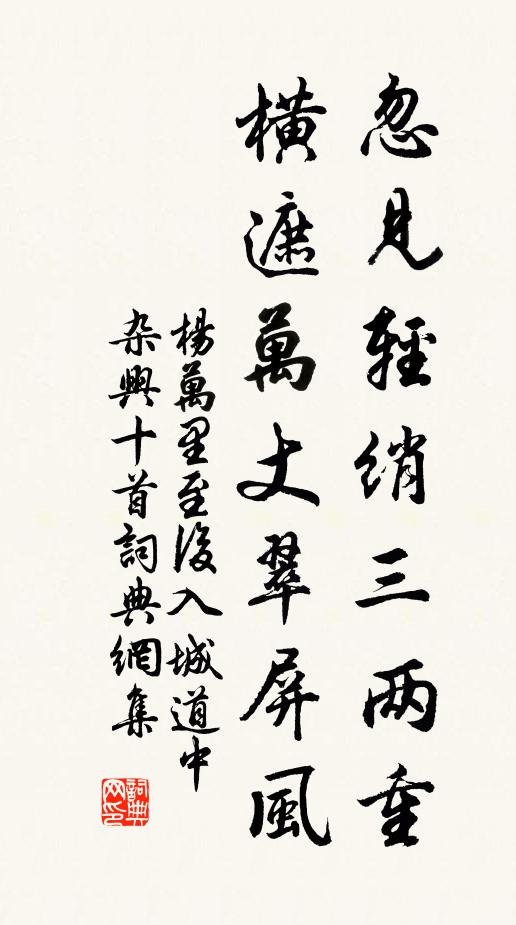 忽見輕綃三两重
橫遮萬丈翠屏風
楊萬里至後入城道中
杂興十首詞典網集
詞典
网印